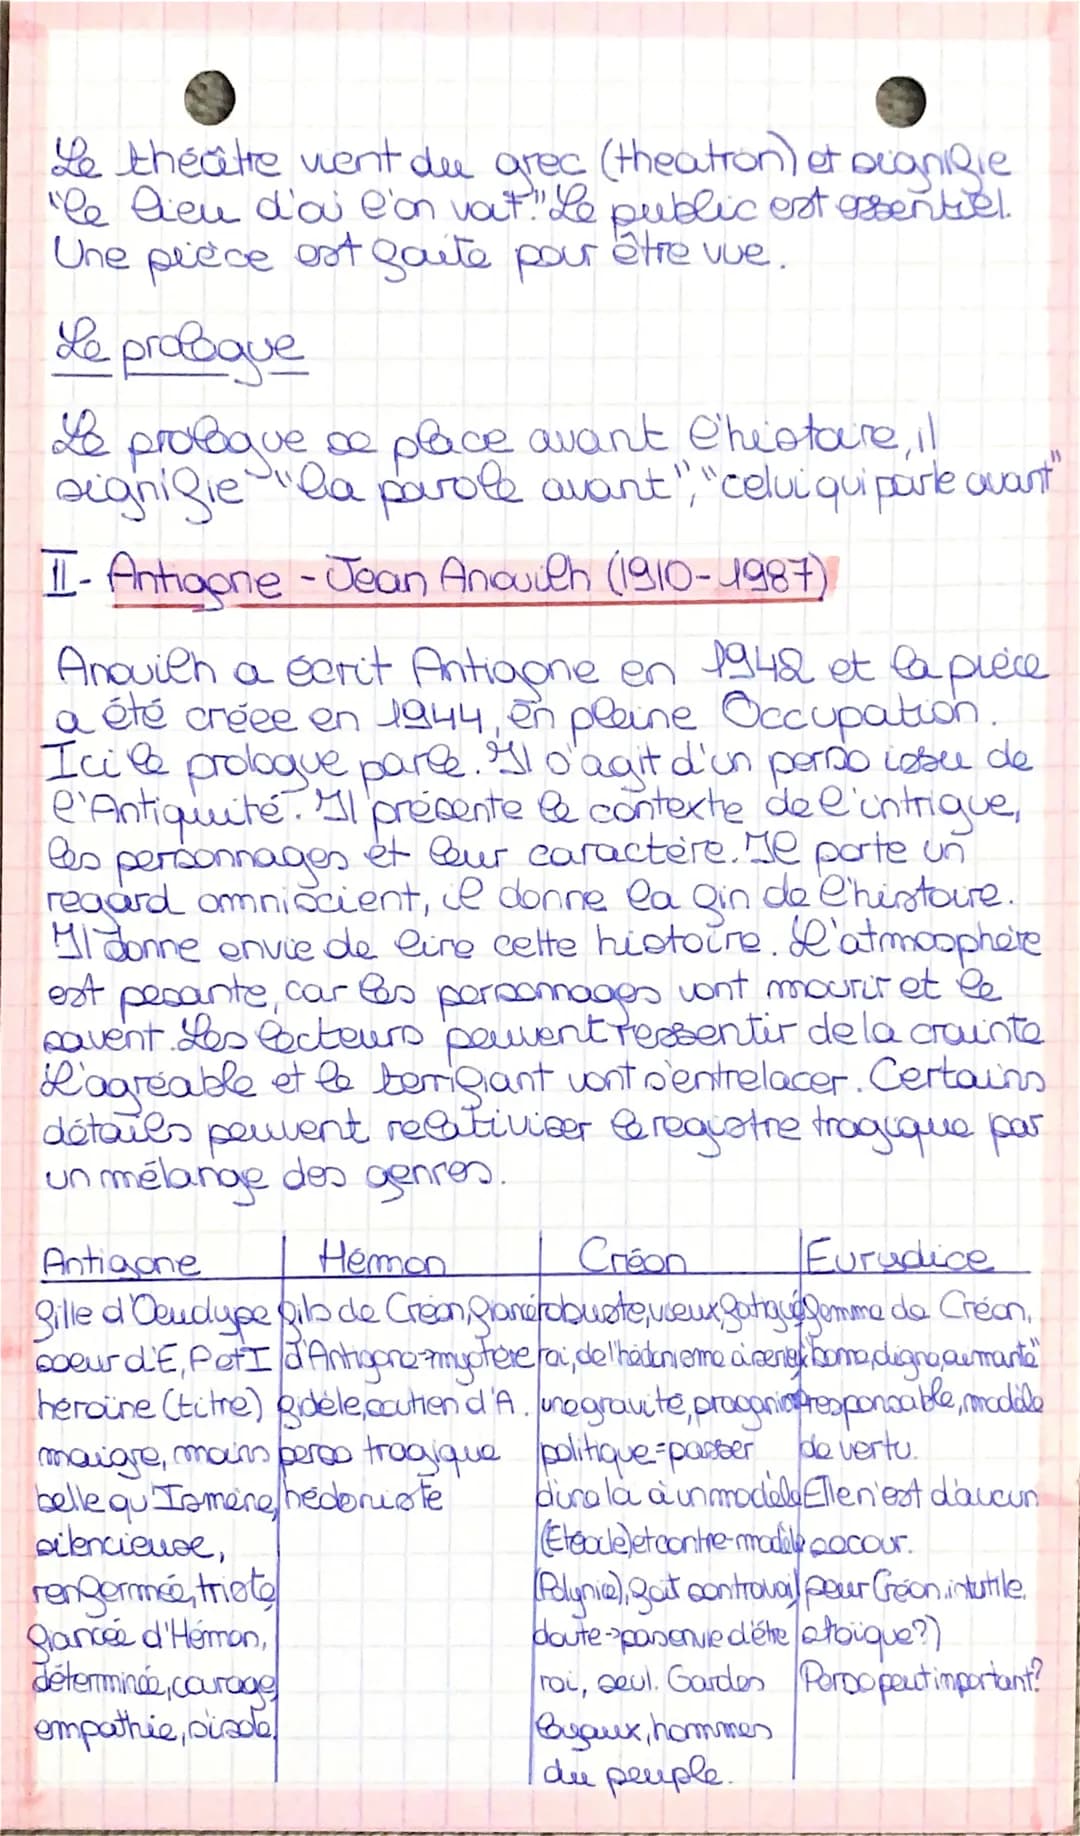 Le théâtre vient du grec (theatron) et signifie
"le lieu d'où l'on voit." Le public est essentiel.
Une pièce est faite pour être vue.
Le prologue
Le prologue se place avant l'histoire, il
signifie "la parole avant", "celui qui parle avant"
II- Antigone - Jean Anouilh (1910-1987)
Anouilh a écrit Antigone en 1942 et la pièce
a été créee en 1944, en pleine Occupation.
Ici le prologue parle. Il s'agit d'un perso issu de
l'Antiquité. Il présente le contexte de l'intrigue,
les personnages et leur caractère. Il porte un
regard omniscient, il donne la fin de l'histoire.
Il donne envie de lire cette histoire. L'atmosphère
est pesante, car les personnages vont mourir et le
savent. Les lecteurs peuvent ressentir de la crainte
L'agréable et le terrifiant vont s'entrelacer. Certains
détails peuvent relativiser le registre tragique par
un mélange des genres.
Antigone
fille d'Oeudype
soeur d'E, P et I
héroïne (titre)
maigre, moins
belle qu'Ismène,
silencieuse,
renfermée, triste
fiancée d'Hémon,
déterminée, courage,
empathie, s'isole,
Hémon
fils de Créon, fiancé
d'Antigone → mystère
fidèle, soutien d'A.
perso tragique
hédoniste
Créon
robuste, vieux, fatigué
roi, de l'hédonisme à
une gravité,
politique = passer
à un modèle
(Etéocle) et contre-modèle
(Polynie), fait
doute → pas envie d'être
roi, seul. Gardes
loyaux, hommes
du peuple.
Eurudice
femme de Créon,
"bonne, digne, aimante"
responsable, modèle
de vertu.
Elle n'est d'aucun
secour.
pour Créon. intutile.
stoïque?)
Perso peut important?